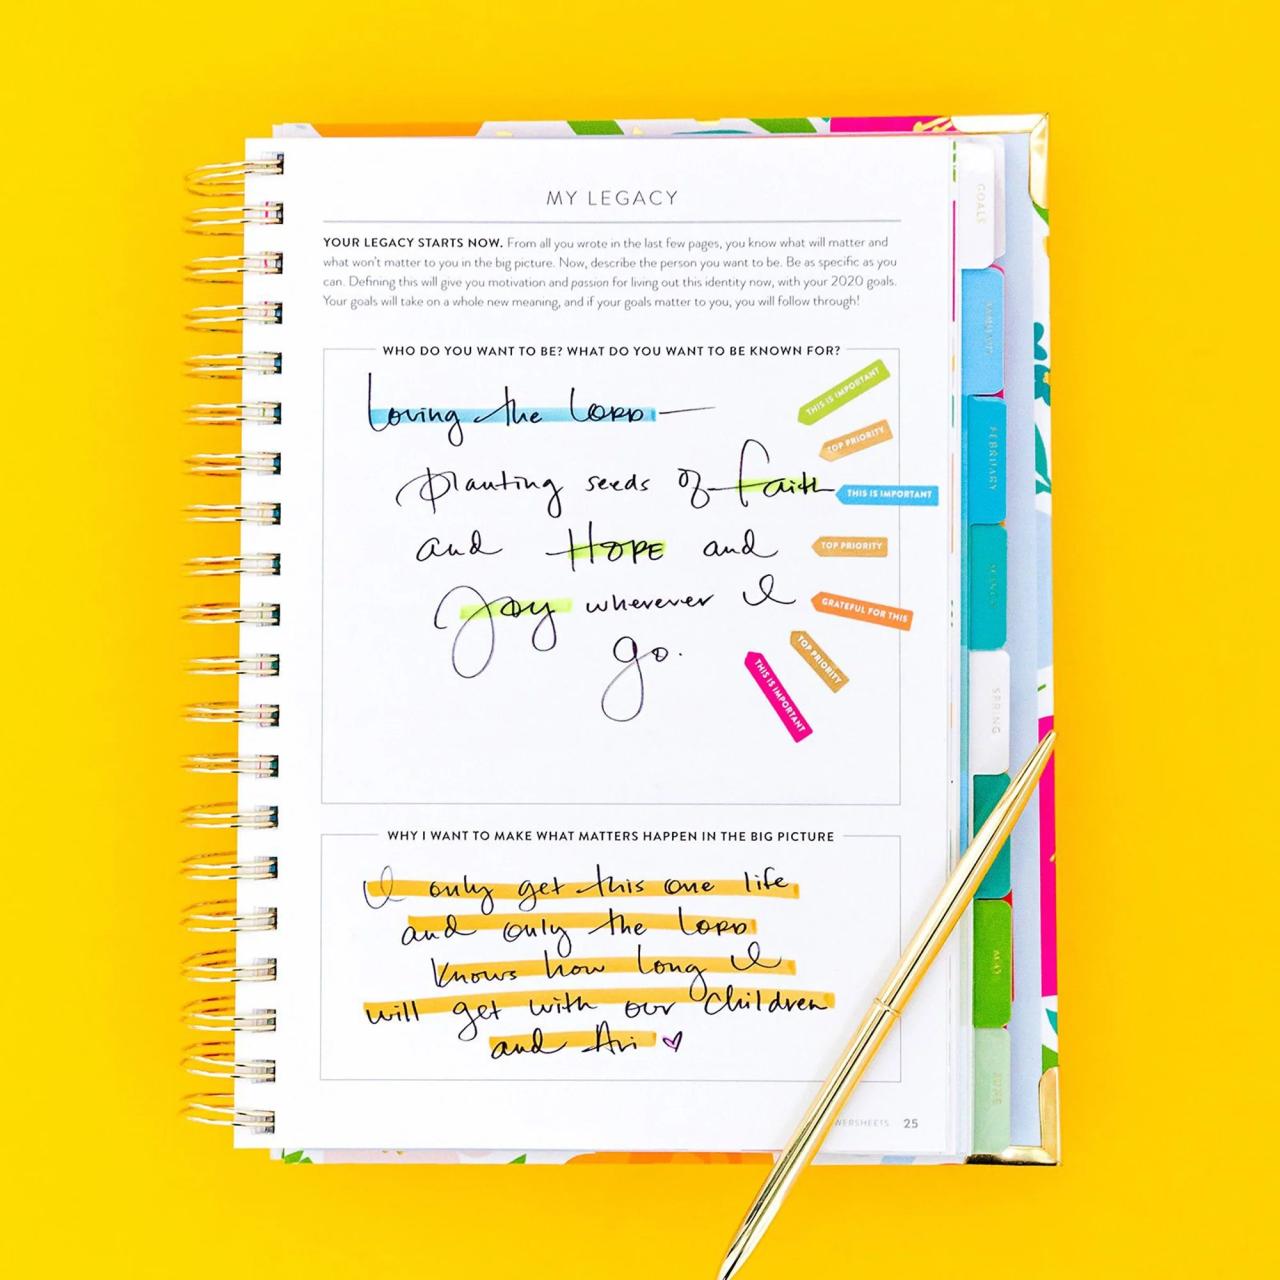 MY LEGACY
YOUR LEGACY STARTS NOW. From all you wrote in the last few pages, you know what will matter and
what won't matter to you in the big picture. Now, describe the person you want to be. Be as specific as you
can. Defining this will give you motivation and passion for living out this identity now, with your 2020 goals.
Your goals will take on a whole new meaning, and if your goals matter to you, you will follow through!
WHO DO YOU WANT TO BE? WHAT DO YOU WANT TO BE KNOWN FOR?
Loving the LORD —
planting seeds of faith
and HOPE and
Joy wherever I
go.
THIS IS IMPORTANT
TOP PRIORITY
THIS IS IMPORTANT
TOP PRIORITY
GRATEFUL FOR THIS
TOP PRIORITY
THIS IS IMPORTANT
WHY I WANT TO MAKE WHAT MATTERS HAPPEN IN THE BIG PICTURE
I only get this one life
and only the LORD
knows how long I
will get with our children
and Ari ♡
WERSHEETS 25
GOALS
JANUARY
FEBRUARY
MARCH
SPRING
MAY
JUNE